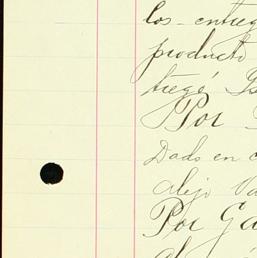 los entreg
producto
tregé
Por
Dado en c
Alejo Va
Por Ga